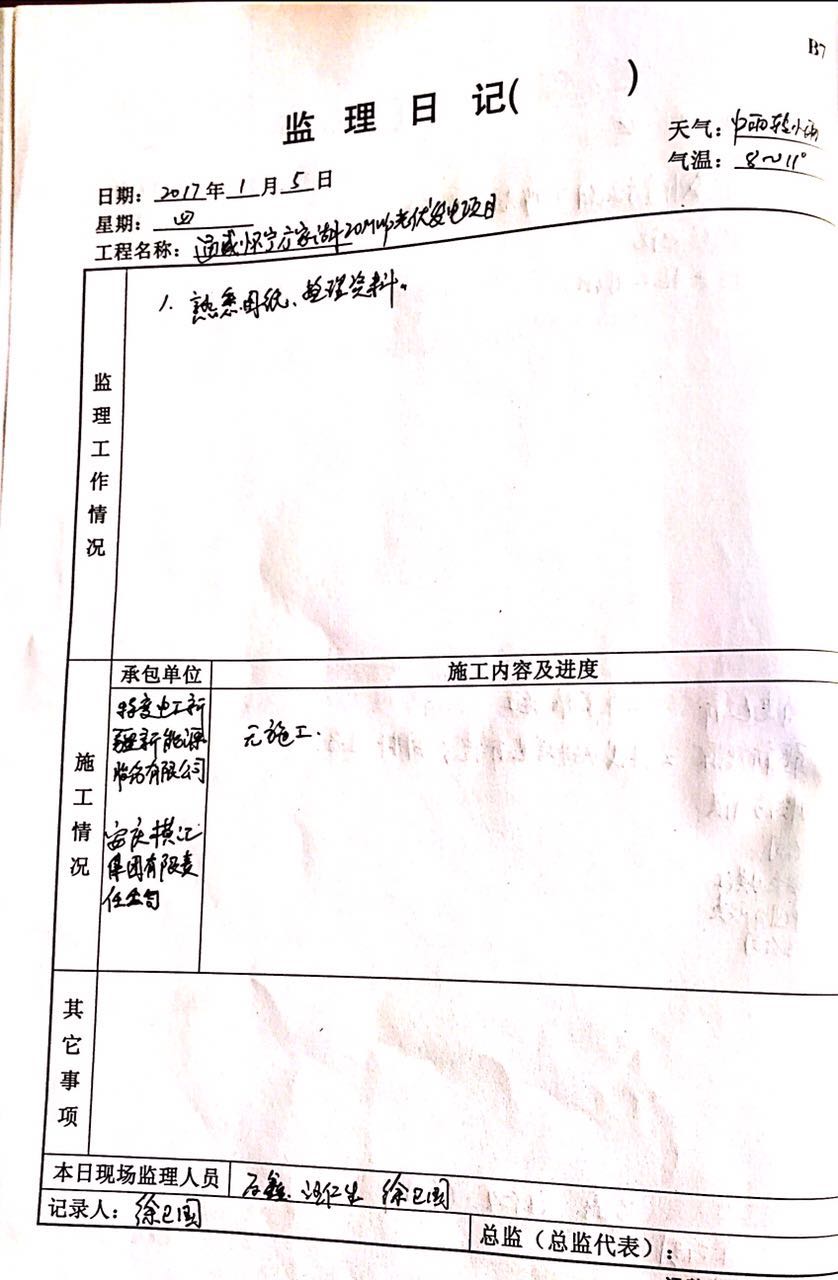 B7
监理日记( )
天气：中雨转小雨
气温：8～11°
日期：2017年1月5日
星期：四
工程名称：通威怀宁 20MWp光伏发电项目
监理工作情况
1. 熟悉图纸、整理资料。
施工情况
承包单位
施工内容及进度
特变电工新
疆新能源
股份有限公司
安庆横江
集团有限责
任公司
无施工.
其它事项
本日现场监理人员
汪仁生 徐卫国
记录人：徐卫国
总监（总监代表）：